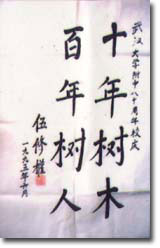 武汉大学附中八十周年校庆
十年树木
百年树人
伍修权
一九九五年十月